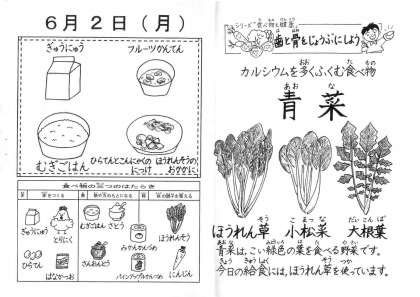 6月2日(月)
ぎゅうにゅう
フルーツかんてん
むぎごはん
ひらてんとこんにゃくの
につけ
ほうれんそうの
おかかに
食べ物の三つのはたらき
ぎゅうにゅう
とりにく
ひらてん
はなかつお
むぎごはん
さとう
さんおんとう
みかんかんづめ
パインアップルかんづめ
ほうれんそう
にんじん
シリーズ "食べ物と健康"
歯と骨をじょうぶにしよう
カルシウムを多くふくむ食べ物
あお な
青菜
ほうれん草
小松菜
大根葉
青菜は、こい緑色の葉を食べる野菜です。
今日の給食には、ほうれん草を使っています。